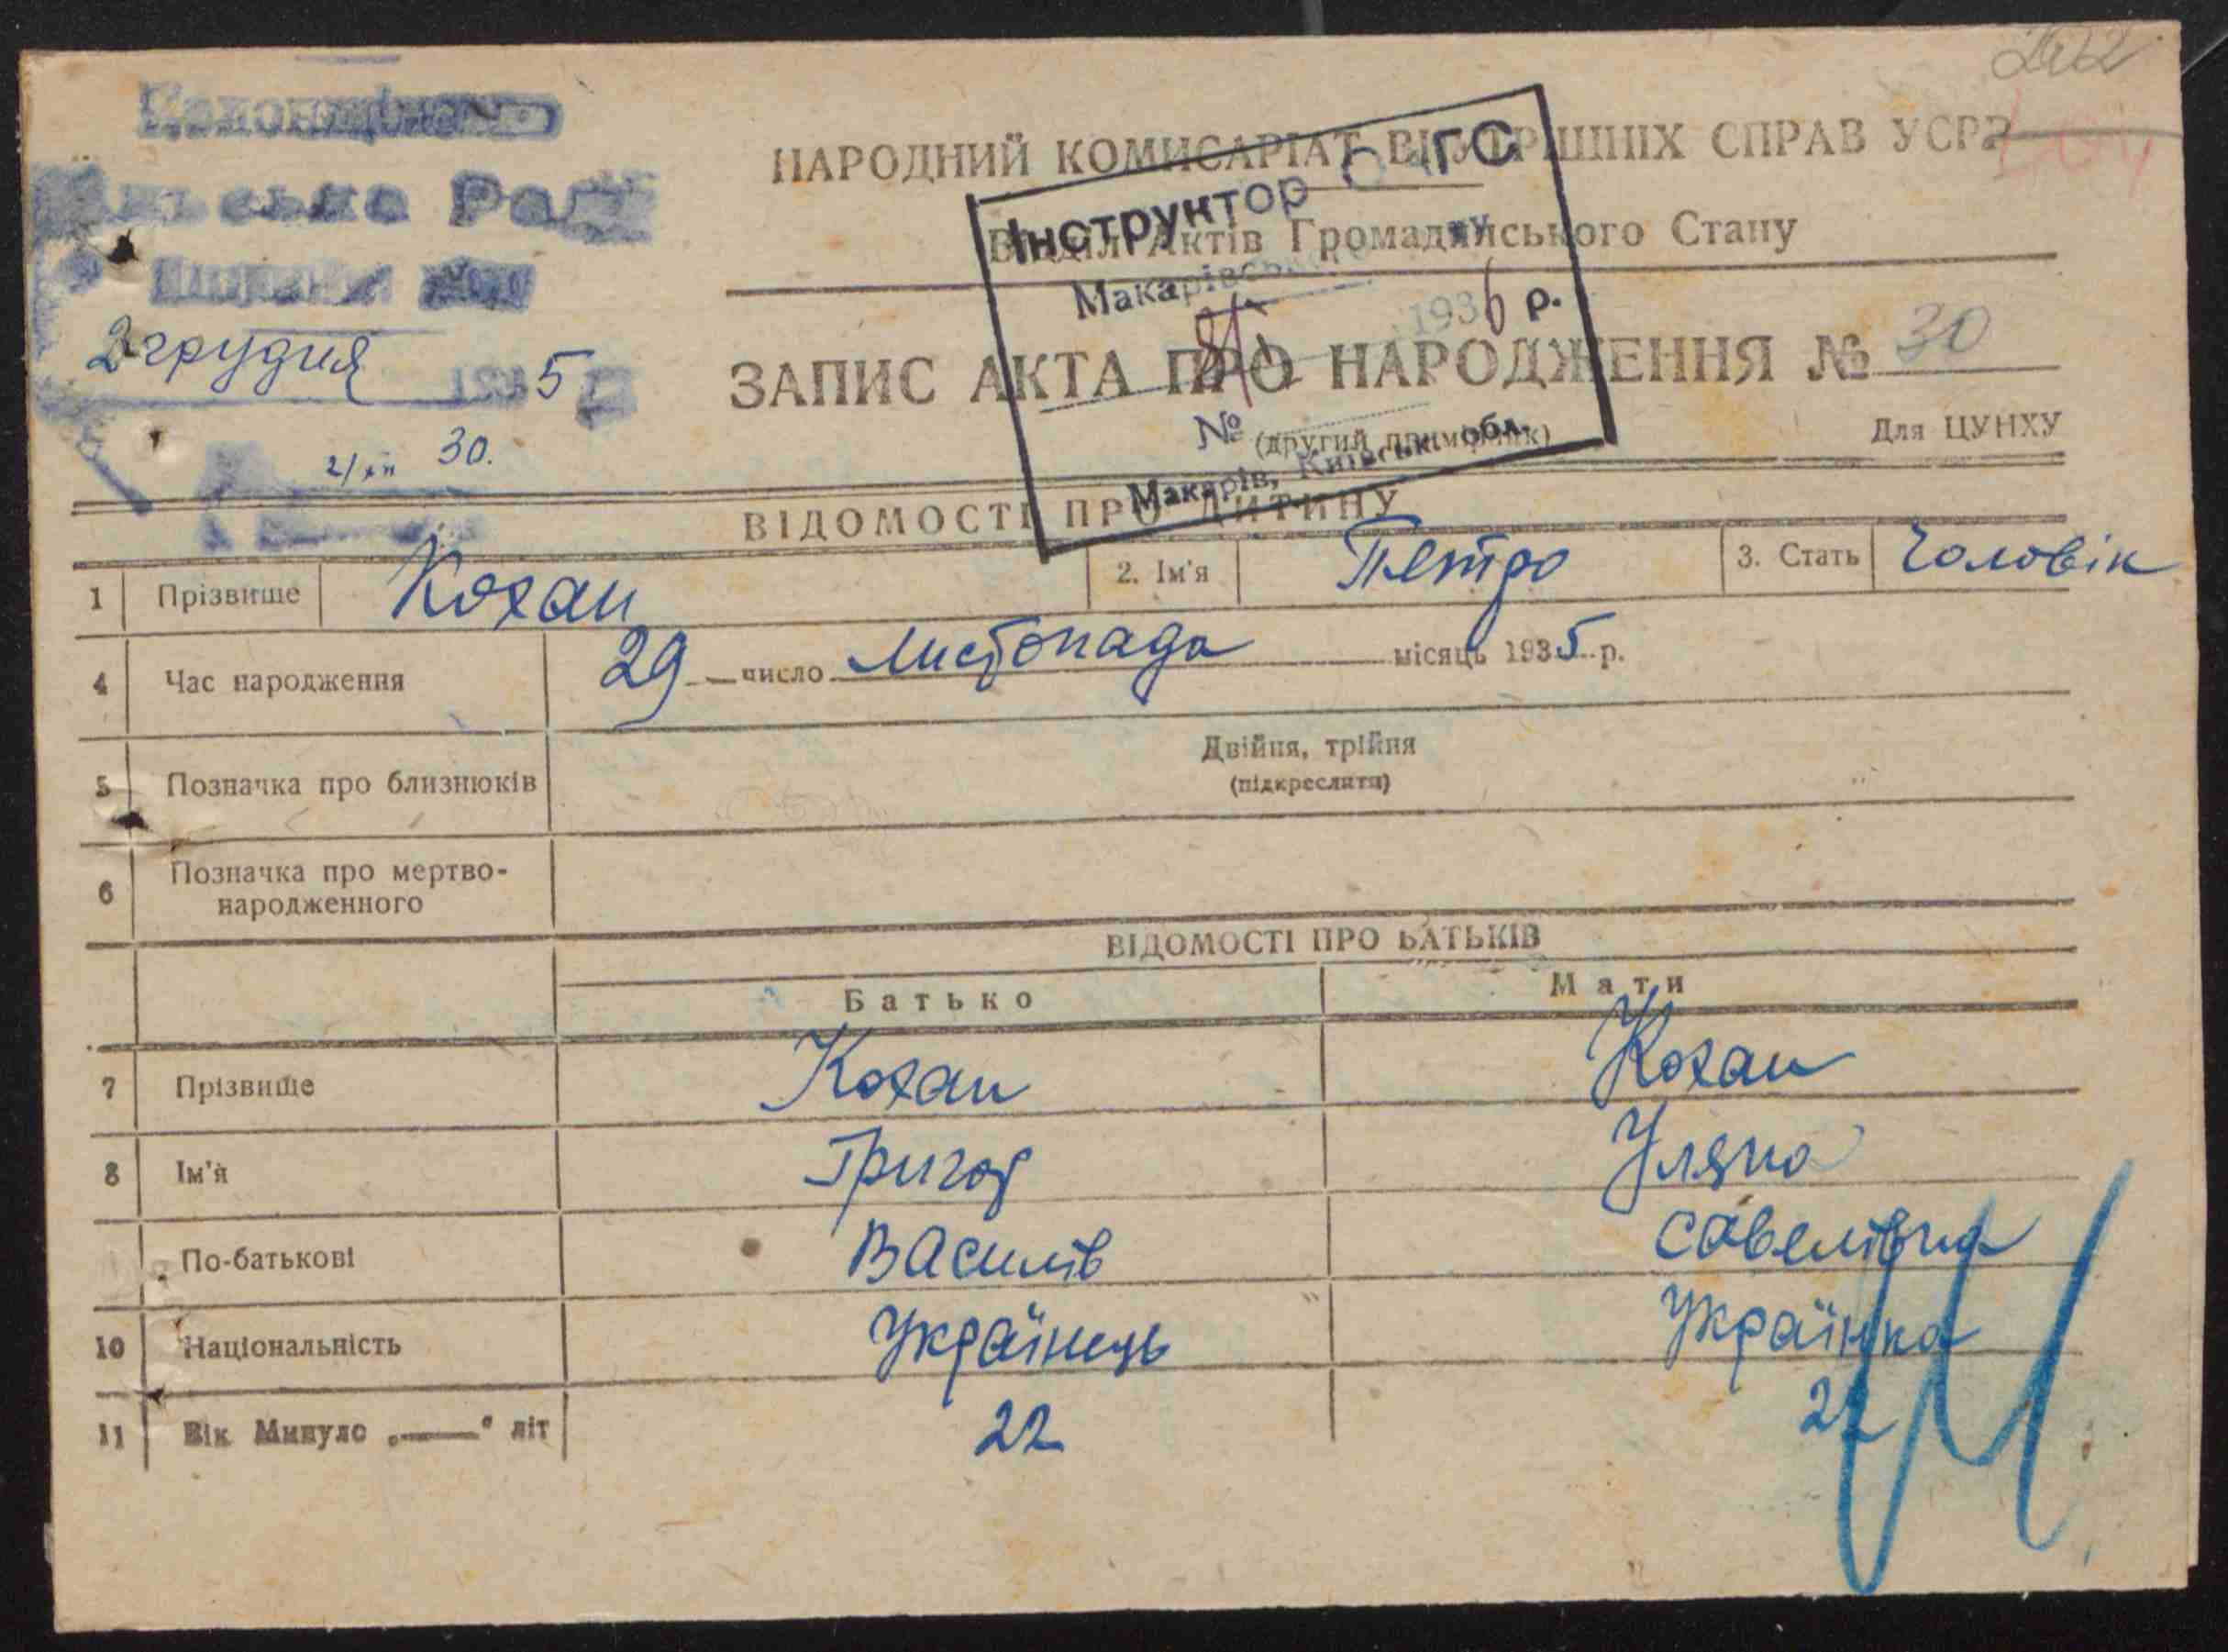 2 грудня 1935
2/XII 30.
НАРОДНИЙ КОМИСАРІАТ ВНУТРІШНІХ СПРАВ УСРР
Відділ Актів Громадянського Стану
Інструктор ОАГС
Макарівського
1936 р.
№
Макарів, Київськ. обл.
ЗАПИС АКТА ПРО НАРОДЖЕННЯ № 30
(другий примірник)
Для ЦУНХУ
ВІДОМОСТІ ПРО ДИТИНУ
1 Прізвище Кохан 2. Ім'я Петро 3. Стать Чоловік
4 Час народження 29 число Листопада місяць 1935 р.
5 Позначка про близнюків Двійня, трійня
(підкреслити)
6 Позначка про мертво-
народженного
ВІДОМОСТІ ПРО БАТЬКІВ
Батько Мати
7 Прізвище Кохан Кохан
8 Ім'я Григор Уляна
По-батькові Василів Савелівна
10 Національність Українець Українка
11 Вік Минуло „——“ літ 22 22